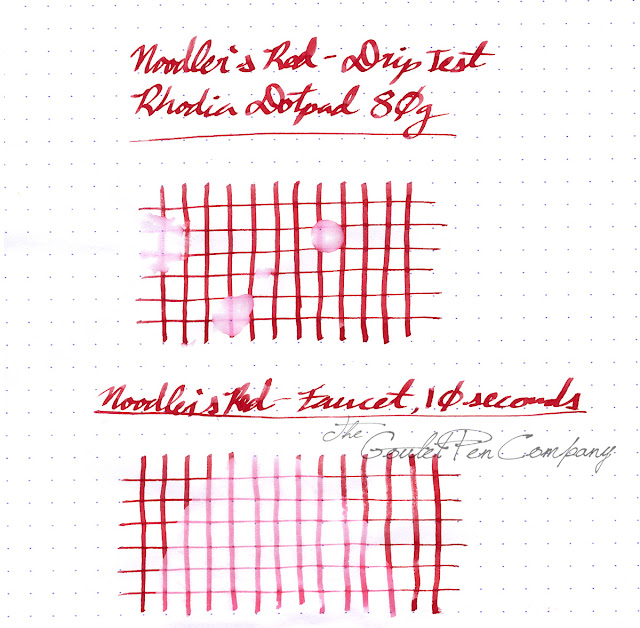 Noodler's Red - Drip Test
Rhodia Dotpad 80g
Noodler's Red - Faucet, 10 seconds
The
Goulet Pen Company